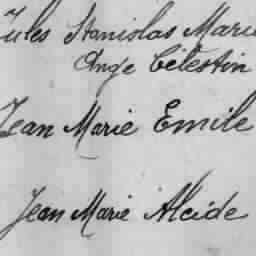 Jules Stanislas Marie
Ange Célestin
Jean Marie Emile
Jean Marie Alcide